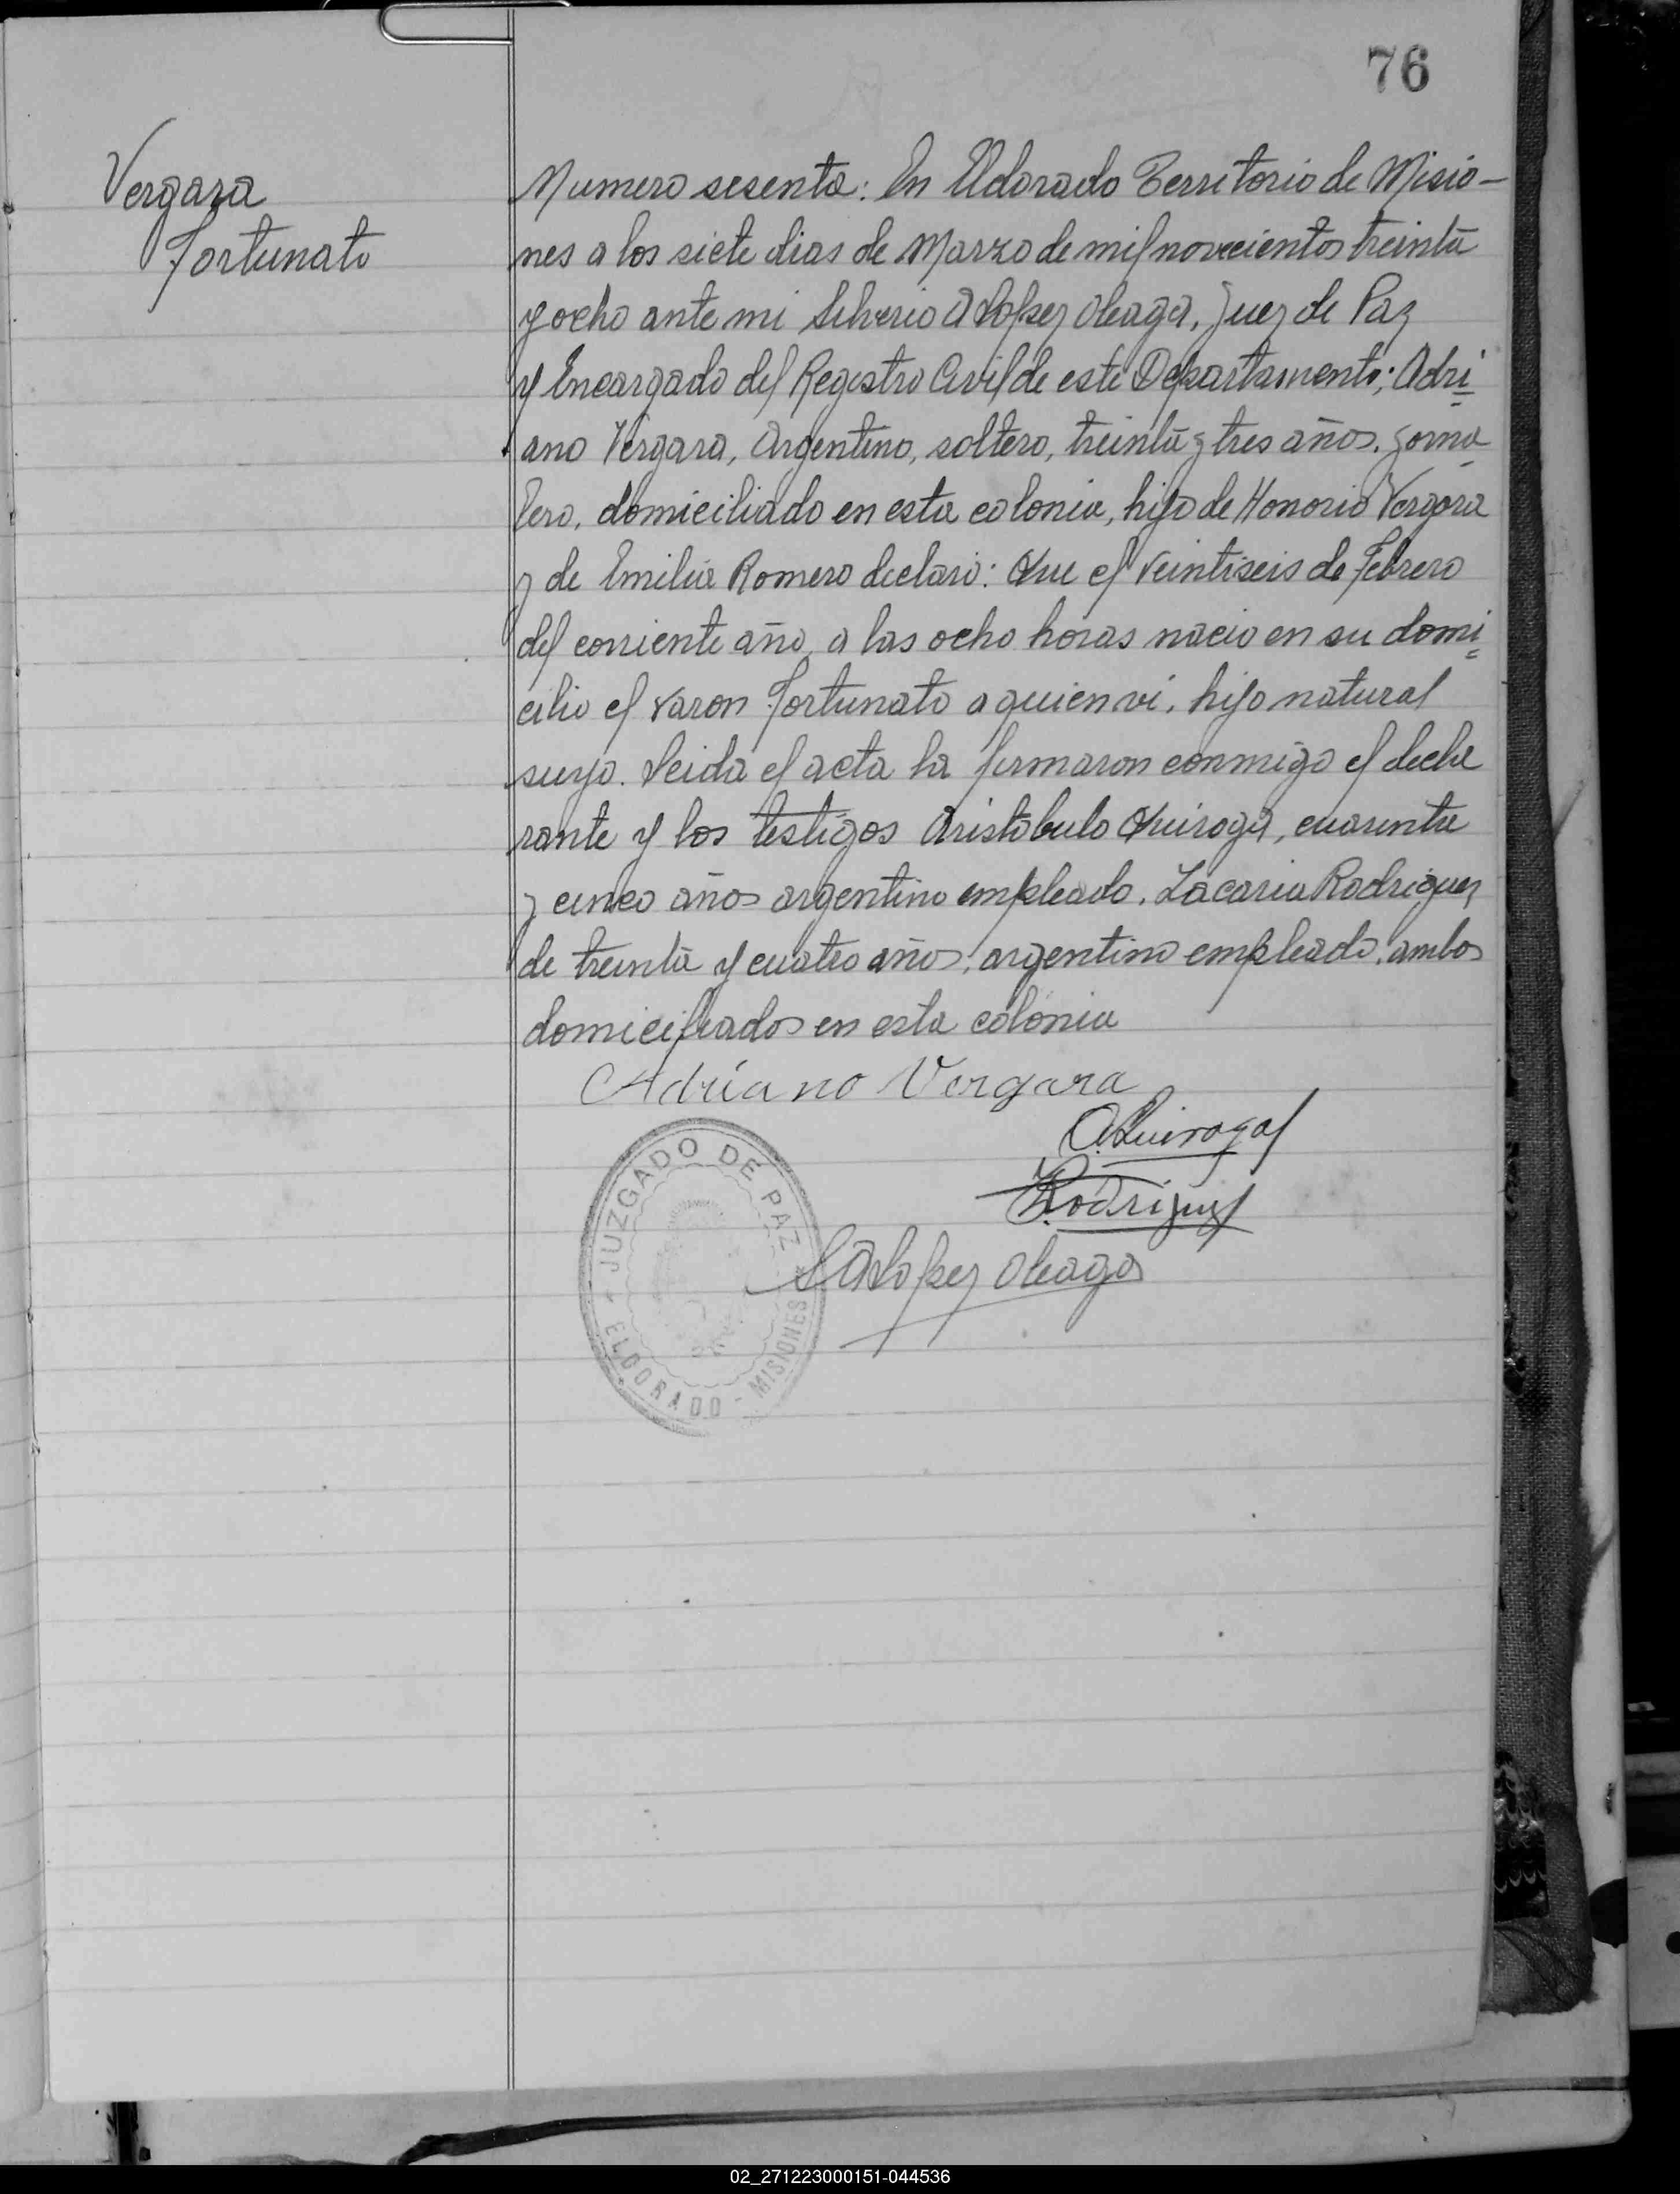 76
Vergara
Fortunato
Numero sesenta: En Eldorado Territorio de Misio-
nes a los siete dias de Marzo de mil novecientos treinta
y ocho ante mi Silverio A Lopez Oleaga, Juez de Paz
y Encargado del Registro Civil de este Departamento; Adri
ano Vergara, Argentino, soltero, treinta y tres años, jorna
lero, domiciliado en esta colonia, hijo de Honorio Vergara
y de Emilia Romero declaró: Que el veintiseis de Febrero
del corriente año, a las ocho horas nacio en su domi
cilio el varon Fortunato a quien vi, hijo natural
suyo. Leida el acta la firmaron conmigo el decla
rante y los testigos Aristobulo Quiroga, cuarenta
y cinco años argentino empleado, Zacaria Rodriguez
de treinta y cuatro años, argentino empleado, ambos
domiciliados en esta colonia
Adriano Vergara
A. Quiroga
Z. Rodriguez
S A Lopez Oleaga
JUZGADO DE PAZ
ELDORADO - MISIONES
02_271223000151-044536